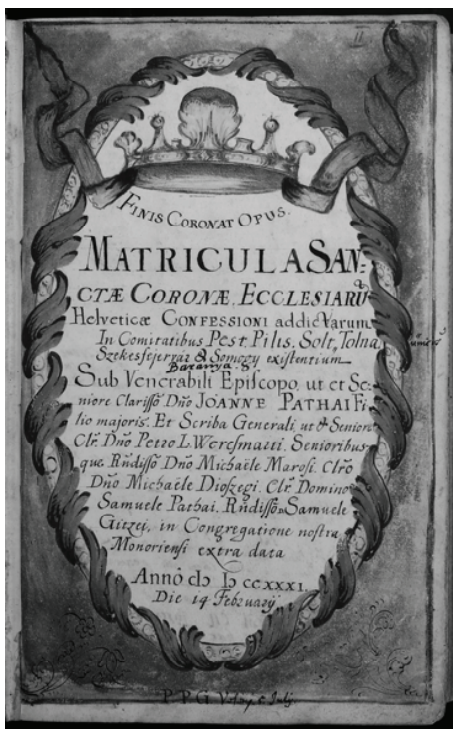 II
FINIS CORONAT OPUS.
MATRICULA SAN-
CTÆ CORONÆ ECCLESIARŨ
Helveticæ CONFESSIONI addictarum
In Comitatibus Pest. Pilis, Solt, Tolna
Szekesfejervár & Somogy existentium
Baranya &
Sub Venerabili Episcopo, ut et Se-
niore Clarissõ Dño JOANNE PATHAI Fi-
lio majoris. Et Scriba Generali, ut & Seniore
Clr̃. Dño Petro L. Veresmatti. Senioribus-
que Rñdissõ Dño Michaële Marosi. Clrõ
Dño Michaële Dioszegi. Clr̃. Domino
Samuele Pathai. Rñdissõ Samuele
Gitzei, in Congregatione nostra
Monoriensi extra data
Anno cIɔ Iɔ CCXXXI.
Die 14 February
P. P. G.